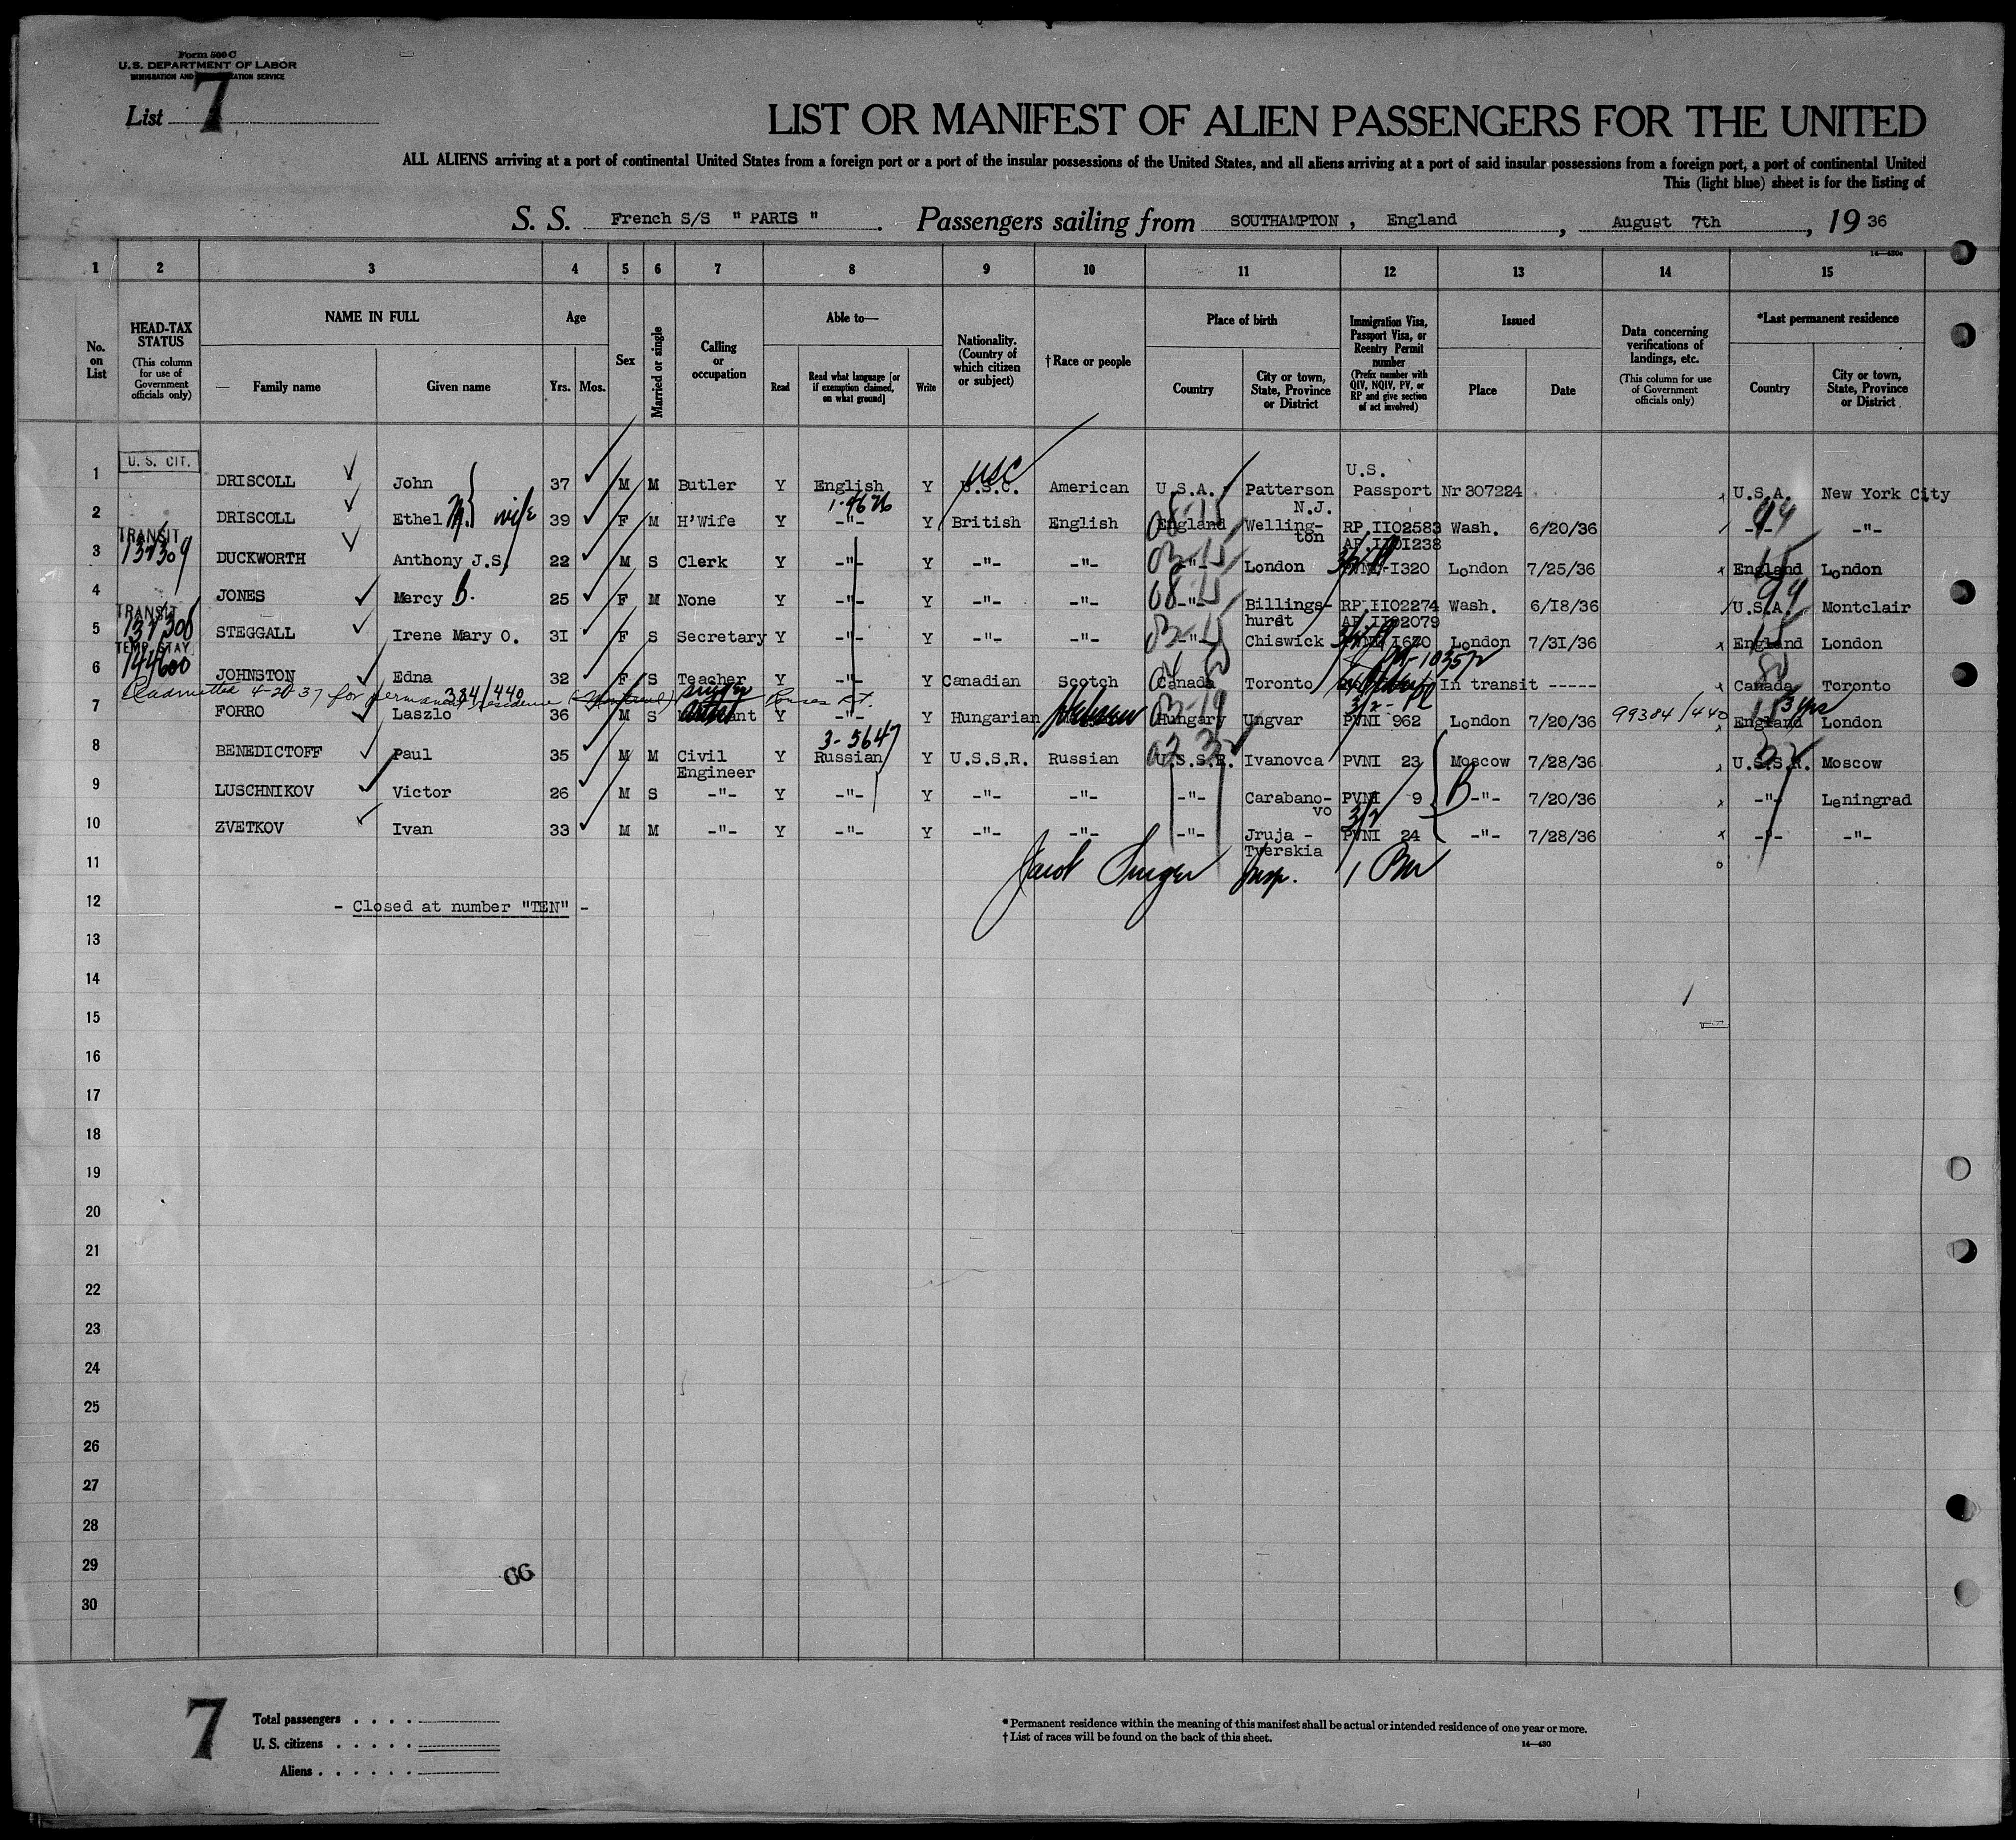 Form 500 C
U.S. DEPARTMENT OF LABOR
IMMIGRATION AND SERVICE
List 7
LIST OR MANIFEST OF ALIEN PASSENGERS FOR THE UNITED
ALL ALIENS arriving at a port of continental United States from a foreign port or a port of the insular possessions of the United States, and all aliens arriving at a port of said insular possessions from a foreign port, a port of continental United
This (light blue) sheet is for the listing of
S. S. French S/S " PARIS " . Passengers sailing from SOUTHAMPTON , England , August 7th , 19 36
1 2 3 4 5 6 7 8 9 10 11 12 13 14 15
No. on List
HEAD-TAX STATUS (This column for use of Government officials only)
NAME IN FULL
Family name
Given name
Age
Yrs. Mos.
Sex
Married or single
Calling or occupation
Able to—
Read
Read what language [or if exemption claimed, on what ground]
Write
Nationality. (Country of which citizen or subject)
† Race or people
Place of birth
Country
City or town, State, Province or District
Immigration Visa, Passport Visa, or Reentry Permit number (Prefix number with QIV, NQIV, PV, or RP and give section of act involved)
Issued
Place
Date
Data concerning verifications of landings, etc. (This column for use of Government officials only)
*Last permanent residence
Country
City or town, State, Province or District
1 U. S. CIT. DRISCOLL John 37 M M Butler Y English Y U.S.C. USC American U.S.A. Patterson N.J. U.S. Passport Nr 307224 U.S.A. New York City
2 DRISCOLL Ethel M. wife 39 F M H'Wife Y -"- Y British English England Welling- ton RP.II02583 Wash. 6/20/36 -"- -"-
3 TRANSIT DUCKWORTH Anthony J.S. 22 M S Clerk Y -"- Y -"- -"- -"- London I320 London 7/25/36 England London
4 JONES Mercy B. 25 F M None Y -"- Y -"- -"- -"- Billings- hurst RP.II02274 Wash. 6/18/36 U.S.A. Montclair
5 TRANSIT STEGGALL Irene Mary O. 31 F S Secretary Y -"- Y -"- -"- -"- Chiswick London 7/31/36 England London
6 TEMP. STAY 144600 JOHNSTON Edna 32 F S Teacher Y -"- Y Canadian Scotch Canada Toronto In transit ----- Canada Toronto
admitted 4-20-37 for permanent residence 384/440
7 FORRO Laszlo 36 M S Y -"- Y Hungarian Hebrew Hungary Ungvar PVNI 962 London 7/20/36 99384/440 England 3 yrs London
8 BENEDICTOFF Paul 35 M M Civil Engineer Y Russian Y U.S.S.R. Russian U.S.S.R. Ivanovca PVNI 23 Moscow 7/28/36 U.S.S.R. Moscow
9 LUSCHNIKOV Victor 26 M S -"- Y -"- Y -"- -"- -"- Carabano- vo PVNI 9 -"- 7/20/36 -"- Leningrad
10 ZVETKOV Ivan 33 M M -"- Y -"- Y -"- -"- -"- Jruja - Tverskia PVNI 24 -"- 7/28/36 -"- -"-
11 Insp.
12 - Closed at number "TEN" -
13
14
15
16
17
18
19
20
21
22
23
24
25
26
27
28
29
30
66
7
Total passengers . . . .
U. S. citizens . . . . .
Aliens . . . . . .
* Permanent residence within the meaning of this manifest shall be actual or intended residence of one year or more.
† List of races will be found on the back of this sheet.
14—430